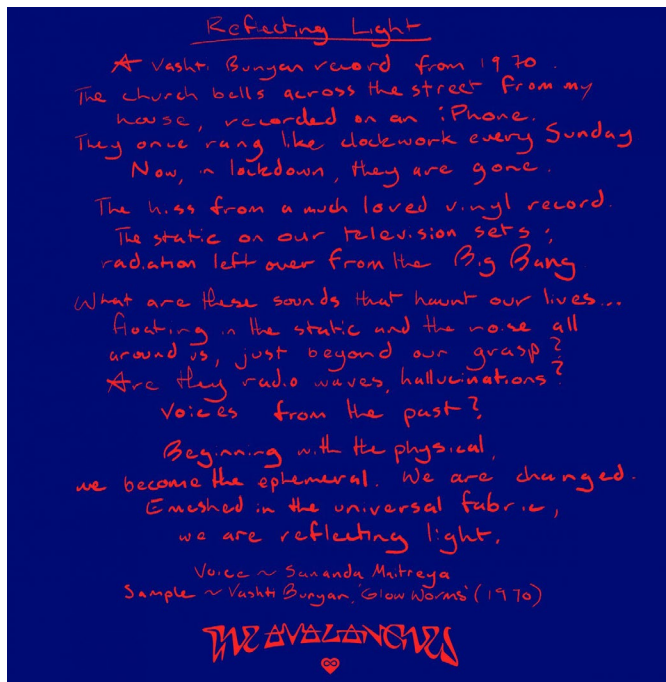 Reflecting Light
A Vashti Bunyan record from 1970.
The church bells across the street from my
house, recorded on an iPhone.
They once rang like clockwork every Sunday
Now, in lockdown, they are gone.
The hiss from a much loved vinyl record.
The static on our television sets;
radiation left over from the Big Bang
What are these sounds that haunt our lives...
floating in the static and the noise all
around us, just beyond our grasp?
Are they radio waves, hallucinations?
Voices from the past?
Beginning with the physical,
we become the ephemeral. We are changed.
Emeshed in the universal fabric,
we are reflecting light.
Voice ~ Sananda Maitreya
Sample ~ Vashti Bunyan, 'Glow Worms' (1970)
THE AVALANCHES